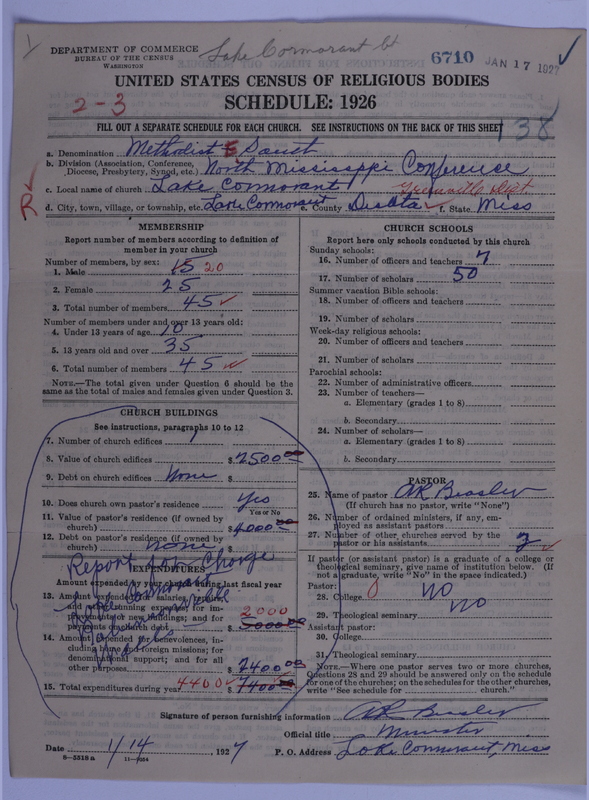 Lake Cormorant Ct
DEPARTMENT OF COMMERCE
BUREAU OF THE CENSUS
WASHINGTON
6710 JAN 17 1927
UNITED STATES CENSUS OF RELIGIOUS BODIES
2-3
SCHEDULE: 1926
FILL OUT A SEPARATE SCHEDULE FOR EACH CHURCH. SEE INSTRUCTIONS ON THE BACK OF THIS SHEET
138
a. Denomination Methodist E South
b. Division (Association, Conference, Diocese, Presbytery, Synod, etc.) North Mississippi Conference
c. Local name of church Lake Cormorant Greenville Dist
R
d. City, town, village, or township, etc. Lake Cormorant e. County Desota f. State Miss
MEMBERSHIP
Report number of members according to definition of
member in your church
Number of members, by sex:
1. Male 15 20
2. Female 25
3. Total number of members 45
Number of members under and over 13 years old:
4. Under 13 years of age 10
5. 13 years old and over 35
6. Total number of members 45
NOTE.—The total given under Question 6 should be the
same as the total of males and females given under Question 3.
CHURCH BUILDINGS
See instructions, paragraphs 10 to 12
7. Number of church edifices 1
8. Value of church edifices $ 2500 00
9. Debt on church edifices None $
10. Does church own pastor's residence Yes
Yes or No
11. Value of pastor's residence (if owned by
church) $ 4000 00
12. Debt on pastor's residence (if owned by
church) none $
Report for Charge
Lake Cormorant
EXPENDITURES
Amount expended by your church during last fiscal year
13. Amount expended for salaries, repairs,
and other running expenses; for im-
provements or new buildings; and for
payments on church debt 2000 $ 5000 00
14. Amount expended for benevolences, in-
cluding home and foreign missions; for
denominational support; and for all
other purposes $ 2400 00
15. Total expenditures during year 4400 $ 7400 00
CHURCH SCHOOLS
Report here only schools conducted by this church
Sunday schools:
16. Number of officers and teachers 7
17. Number of scholars 50
Summer vacation Bible schools:
18. Number of officers and teachers
19. Number of scholars
Week-day religious schools:
20. Number of officers and teachers
21. Number of scholars
Parochial schools:
22. Number of administrative officers
23. Number of teachers—
a. Elementary (grades 1 to 8)
b. Secondary
24. Number of scholars—
a. Elementary (grades 1 to 8)
b. Secondary
PASTOR
25. Name of pastor AR Beasley
(If church has no pastor, write "None")
26. Number of ordained ministers, if any, em-
ployed as assistant pastors
27. Number of other churches served by the
pastor or his assistants 3
If pastor (or assistant pastor) is a graduate of a college or
theological seminary, give name of institution below. (If
not a graduate, write "No" in the space indicated.)
Pastor:
28. College 0 No
29. Theological seminary No
Assistant pastor:
30. College
31. Theological seminary
NOTE.—Where one pastor serves two or more churches,
Questions 28 and 29 should be answered only on the schedule
for one of the churches; on the schedules for the other churches,
write "See schedule for church."
Signature of person furnishing information AR Beasley
Official title Minister
Date 1/14, 1927 P. O. Address Lake Cormorant, Miss
8-5518 a 11-7054